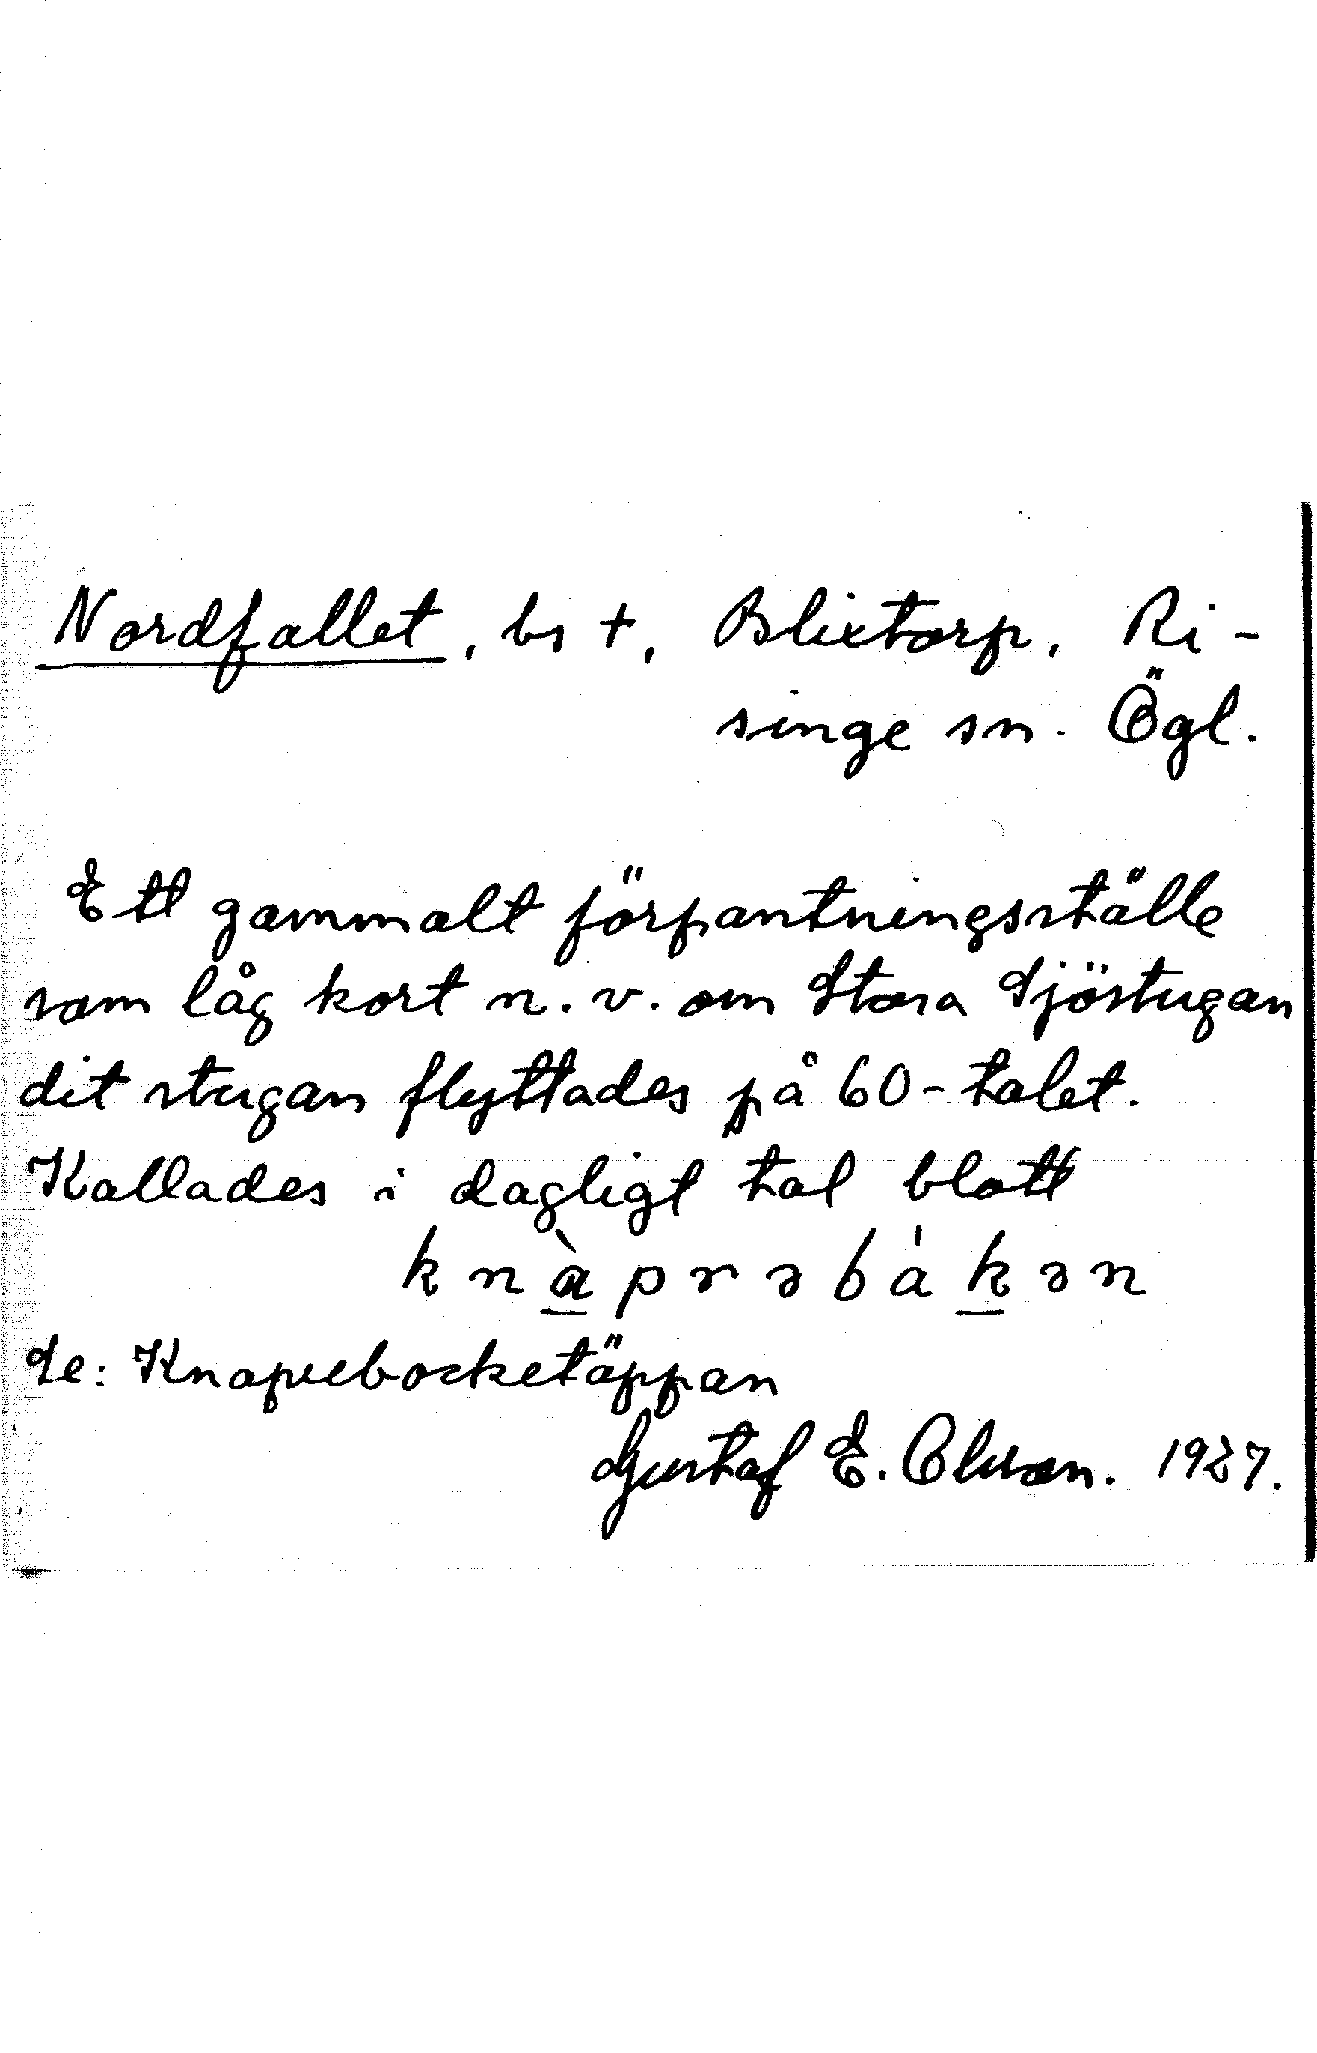 Nordfallet, bs +, Blixtorp, Ri-
singe sn. Ögl.
Ett gammalt förpantningsställe
som låg kort n. v. om Stora Sjöstugan
dit stugan flyttades på 60-talet.
Kallades i dagligt tal blott
knàprəbákən
Se: Knaprebocketäppan
Gustaf E. Olsson. 1927.